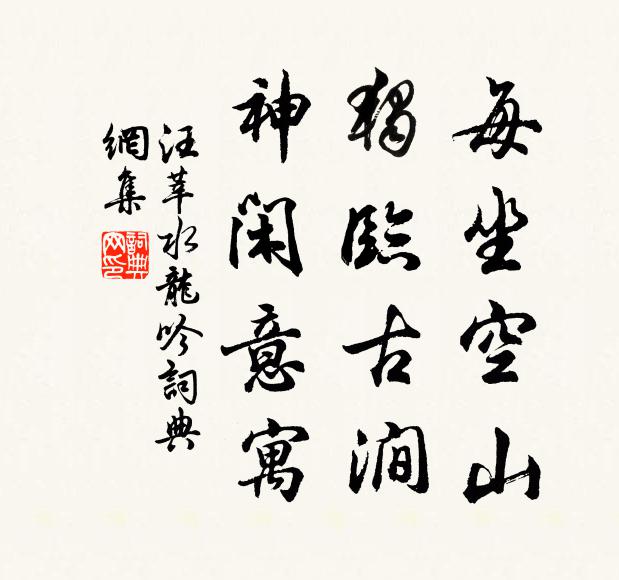 每坐空山
獨臨古澗
神閑意寓
汪莘水龍吟詞典
網集
詞典
網印